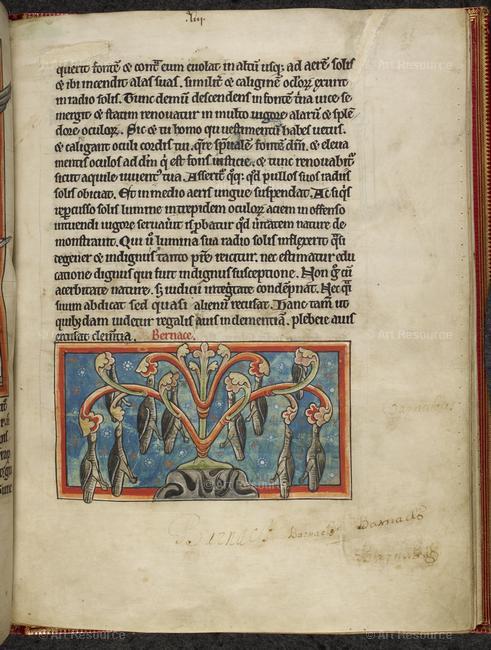 .liij.
querit fontē
 ⁊ cont eum euolat in altū usq; ad aerē solis
⁊ ibi incendit alas suas. similit ⁊ caliginē oclorꝝ
in radio solis. Tunc demū descendens in fontē tīna uice se
mergit ⁊ statim renouatur in multo uigore alarū ⁊ splē
dore oculorꝝ. Sic ⁊ tu homo qui uestimentū habes uetus.
⁊ caligant oculi cordis tui. qre spūalē fontē dm̄. ⁊ eleua
mentis oculos ad dm̄ q̇ est fons iusticie. ⁊ tunc renouabit
sicut aquile iuuent tua. Asserit qq; qd pullos suos radiis
solis obiciat. Et in medio aeris ungue suspendat. Ac si qs
repercusso solis lumine intrepidem oculorꝝ aciem in offenso
intuendi uigore seruauit is pbatur qd ueritatem nature de
monstrauit. Qui ū lumina sua radio solis inflexerit qsi
degener ⁊ indignus tanto patre reicitur. nec estimatur edu
catione dignus qui fuit indignus susceptione. Non g̊ eū
acerbitate nature. sꝫ iudicii integritate condēpnat. Nec qsi
suum abdicat sed quasi alienū recusat. Hanc tam̄ ut
quibꝫdam uidetur regalis auis in dementiā. plebeie auis
excusat clemtia. Bernace.
Barnacle
Bernace Barnacle Barnacle
Barnacle
© Art Resource © Art Resource